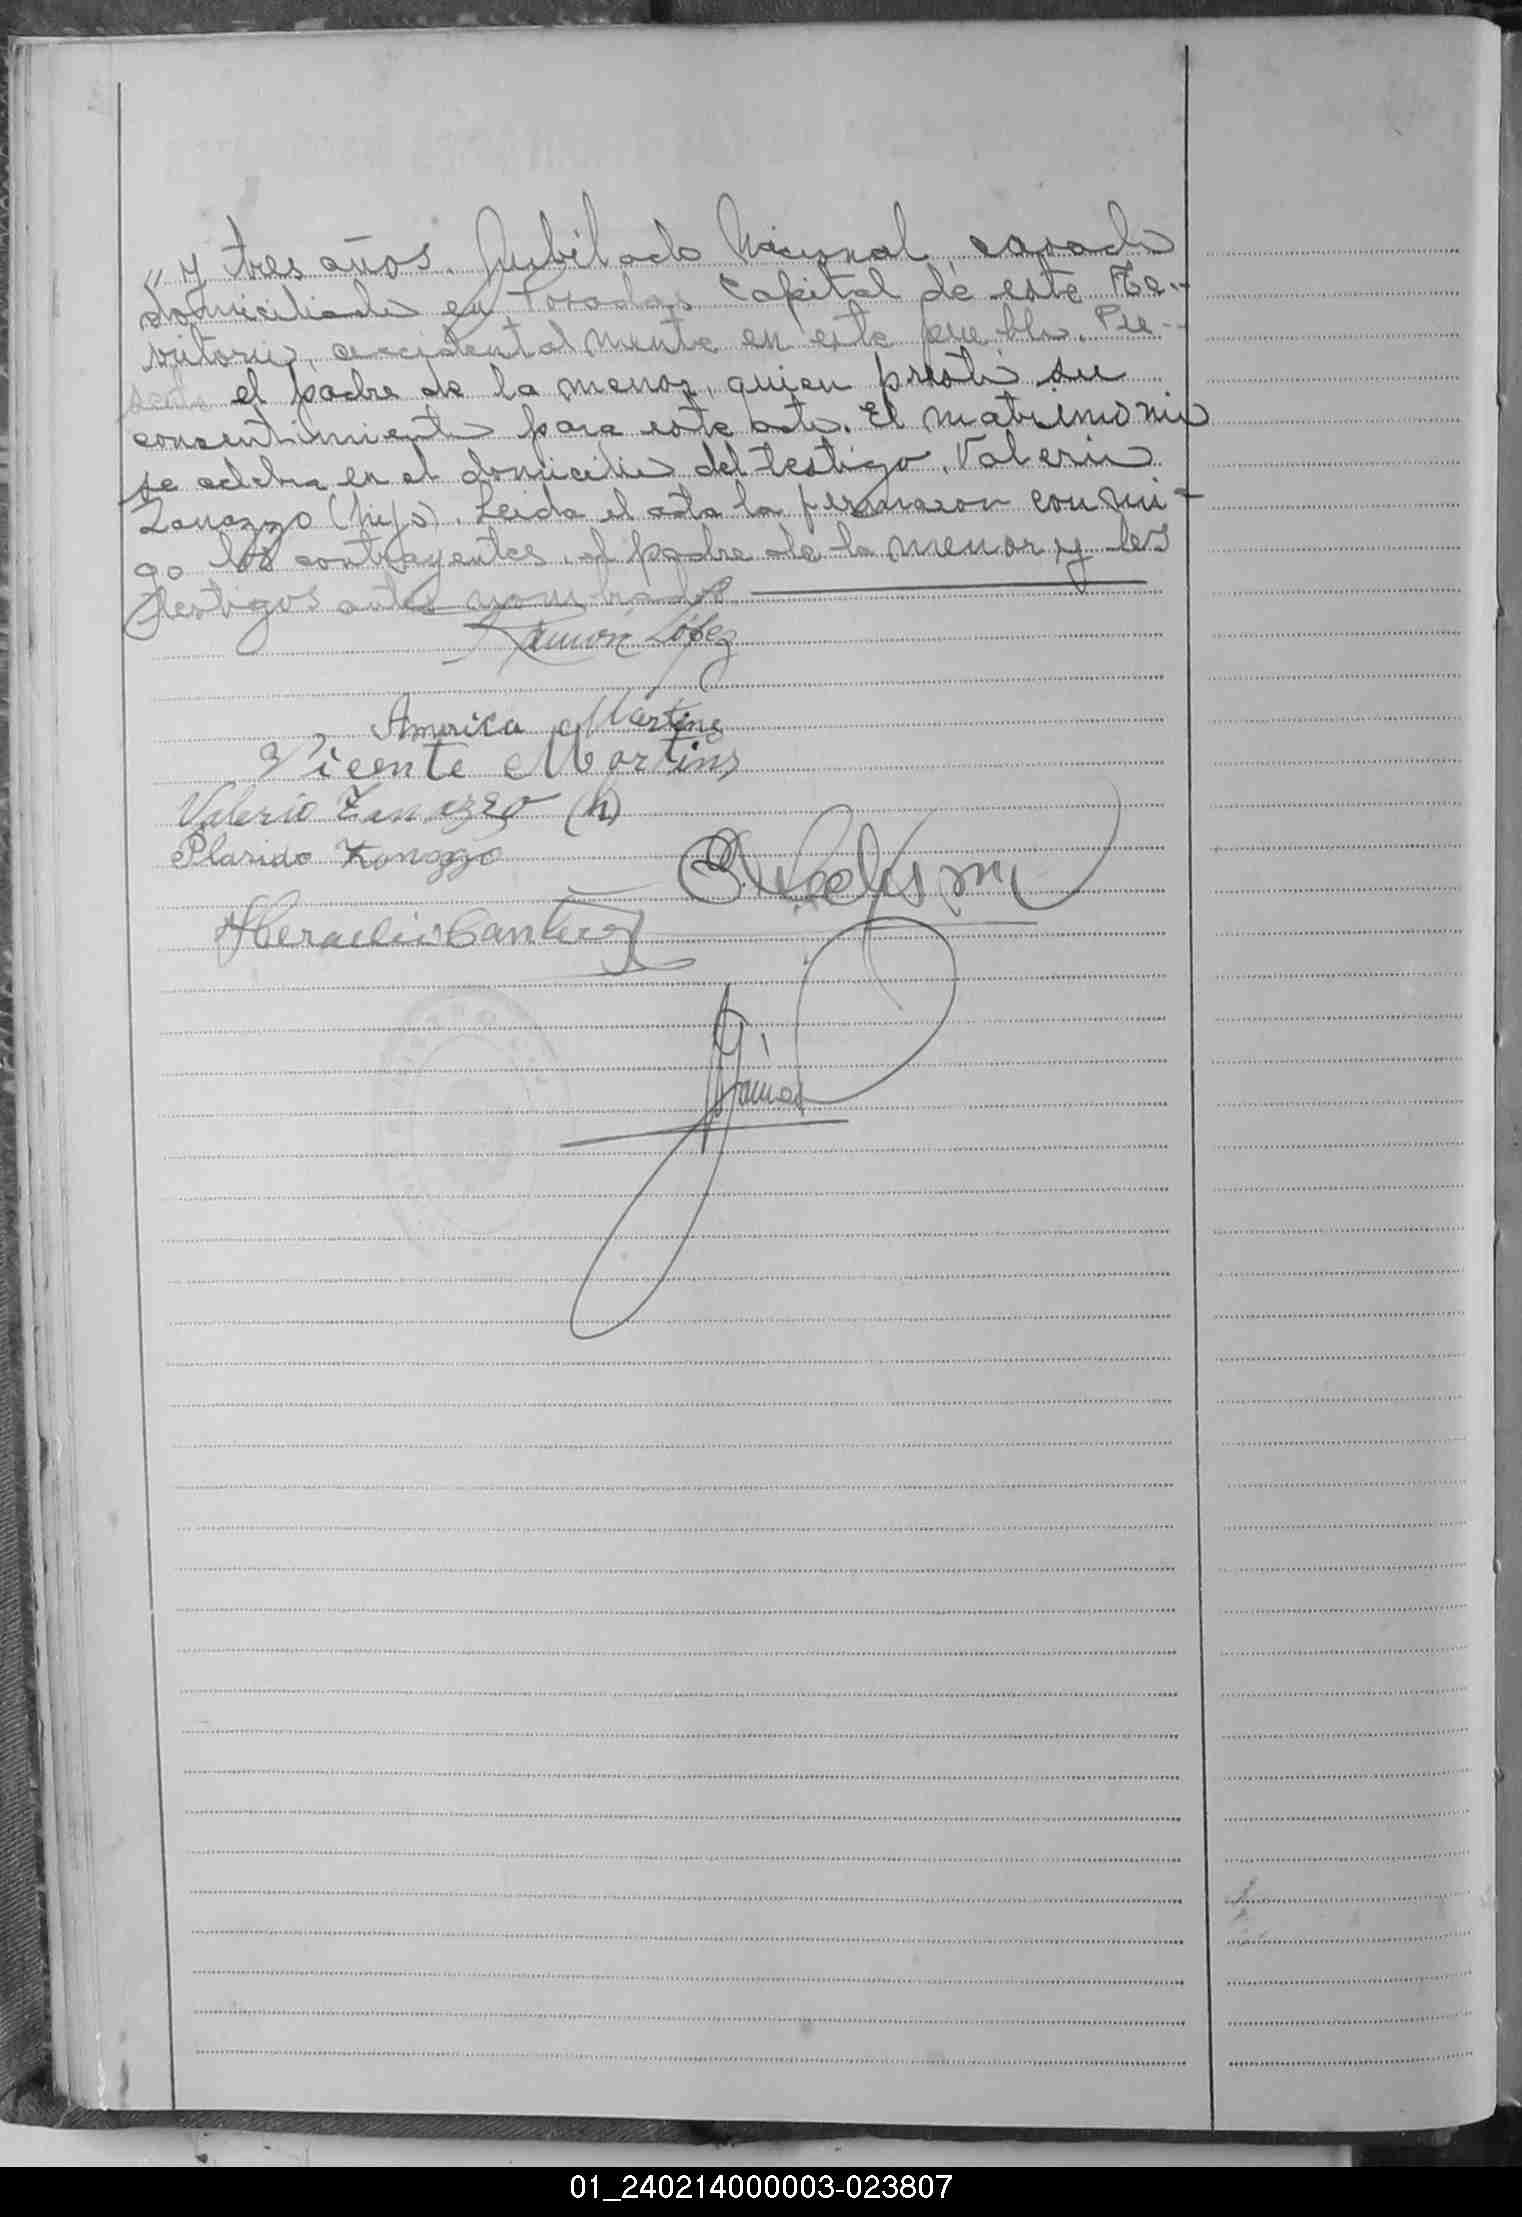 " y tres años. Jubilado Nacional, casado
domiciliado en Posadas Capital de este Te-
rritorio, accidentalmente en este pueblo. Pre-
sente el padre de la menor, quien prestó su
consentimiento para este acto. El matrimonio
se celebra en el domicilio del testigo, Valerio
Zanazzo (hijo). Leida el acta la firmaron conmi-
go los contrayentes, el padre de la menor y los
testigos antes nombrados
Ramón López
America Martins
Vicente Martins
Valerio Zanazzo (h)
Plasido Zanazzo
Heraclio Cantero
01_240214000003-023807